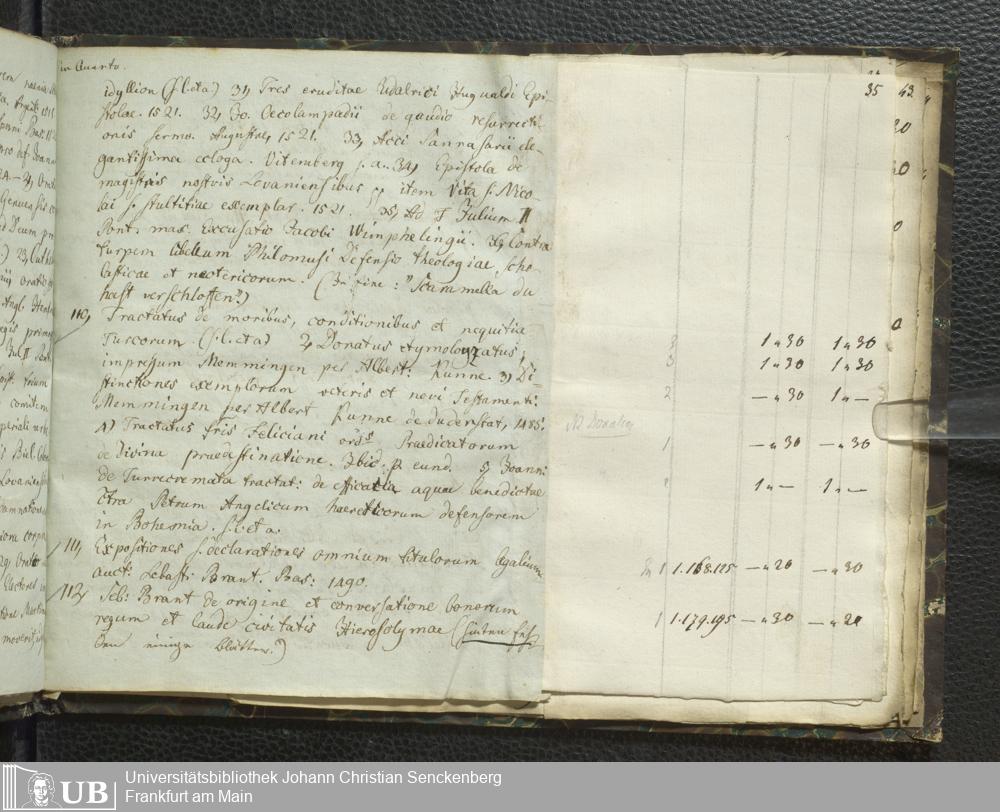 in Quarto.
idyllion (s.l. et a) 31, Tres eruditae Udalrici Hugualdi Epi-
stolae. 1521. 32, Jo. Oecolampadii de gaudio resurrecti-
onis sermo. Augustae, 1521. 33, Acci Sannasarii ele-
gantissima ecloga. Vitemberg s.a. 34, Epistola de
magistris nostris Lovaniensibus item Vita S. Nico-
lai s. stultitiae exemplar. 1521. 35, Ad Julium II
Pont. max. Excusatio Jacobi Wimphelingii. 36, Contra
turpem libellum Philomusi Defensio theologiae scho-
lasticae et neotericorum. (In fine: "Scaramella du
hast verschlossen".)
110, Tractatus de moribus, conditionibus et nequitia
Turcorum. (s.l. et a) 2, Donatus etymologizatus,
impressum Memmingen per Albert: Kunne. 3, Di-
stinctiones exemplorum veteris et novi Testamenti.
Memmingen per Albert Kunne de Duderstat, 1485.
4, Tractatus fris Feliciani ords Praedicatorum
de Divina praedestinatione. Ibid. p. eund. 5, Joannis
de Turrecremata tractat: de efficacia aquae benedictae
ctra Petrum Anglicum haereticorum defensorem
in Bohemia. s.l. et a.
111, Expositiones s. declarationes omnium titulorum legalium
auct: Sebast: Brant. Bas: 1490.
112, Seb: Brant de origine et conversatione bonorum
regum et laude civitatis Hierosolymae (hinten feh-
len einige Blätter.)
35 43
3 1 " 30 1 " 30
3 1 " 30 1 " 30
2 — " 30 1 " —
1 — " 30 — " 30
1 " — 1 " —
1 1.168.125 — " 20 — " 30
1 1.179.195 — " 30 — " 20
UB
Universitätsbibliothek Johann Christian Senckenberg
Frankfurt am Main